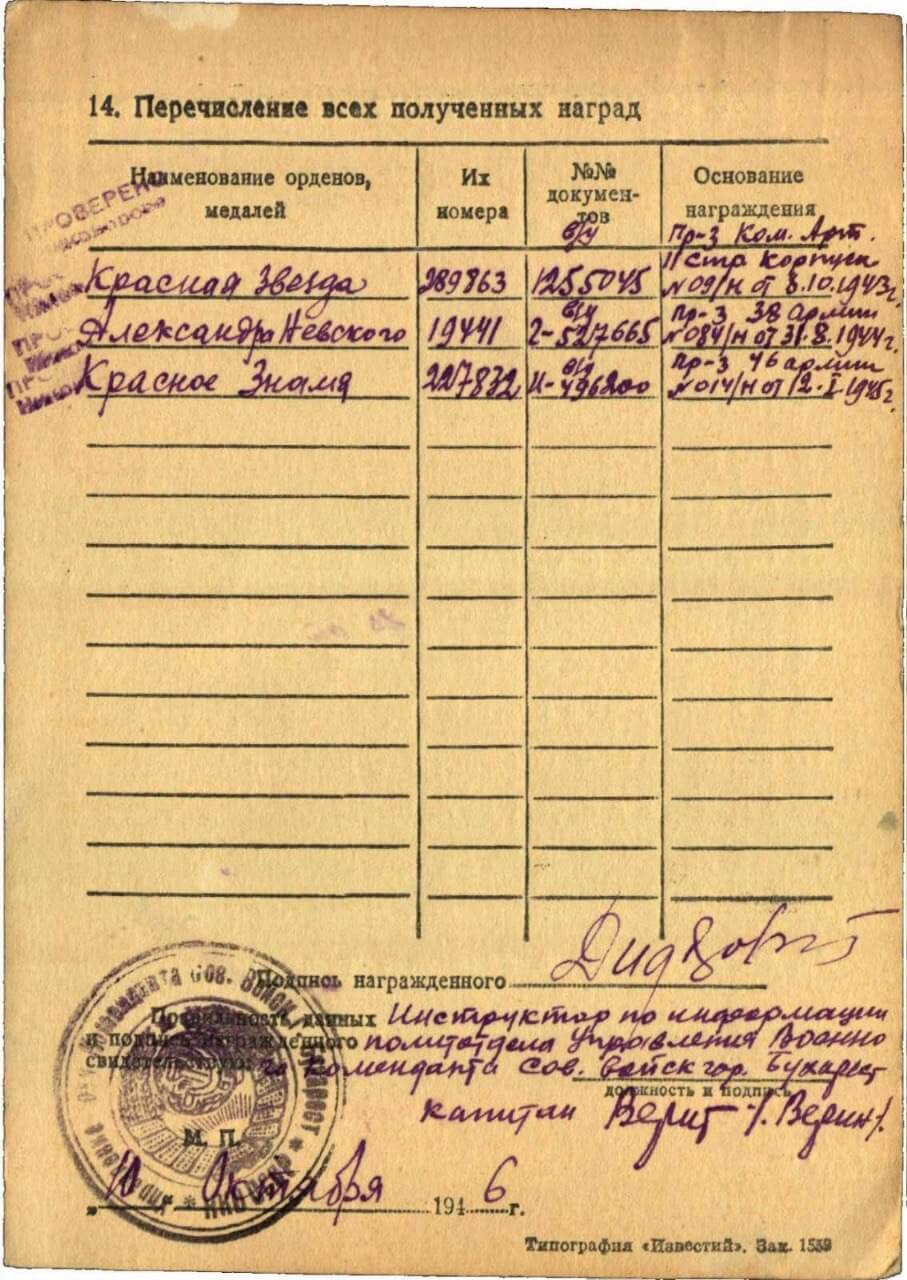 14. Перечисление всех полученных наград
Наименование орденов, медалей
Их номера
№№ документов
Основание награждения
ПРОВЕРЕНО
Красная Звезда
289863
в/у 1255045
Пр-з Ком. Арт. 11 стр корпуса №09/н от 8.10.1943г.
Александра Невского
19441
в/у 2-527665
пр-з 38 армии №084/н от 31.8.1944г.
Красное Знамя
227832
в/у И-496200
пр-з 46 армии №014/н от 12.I.1945г.
Подпись награжденного
Правильность данных Инструктор по информации
и подпись награжденного политотдела Управления Военно
свидетельствую: го Коменданта Сов. Войск гор. Бухарест
должность и подпись
капитан Верит /Верит/.
М. П.
„10 Октября 1946 г.
Типография «Известий». Зак. 1559